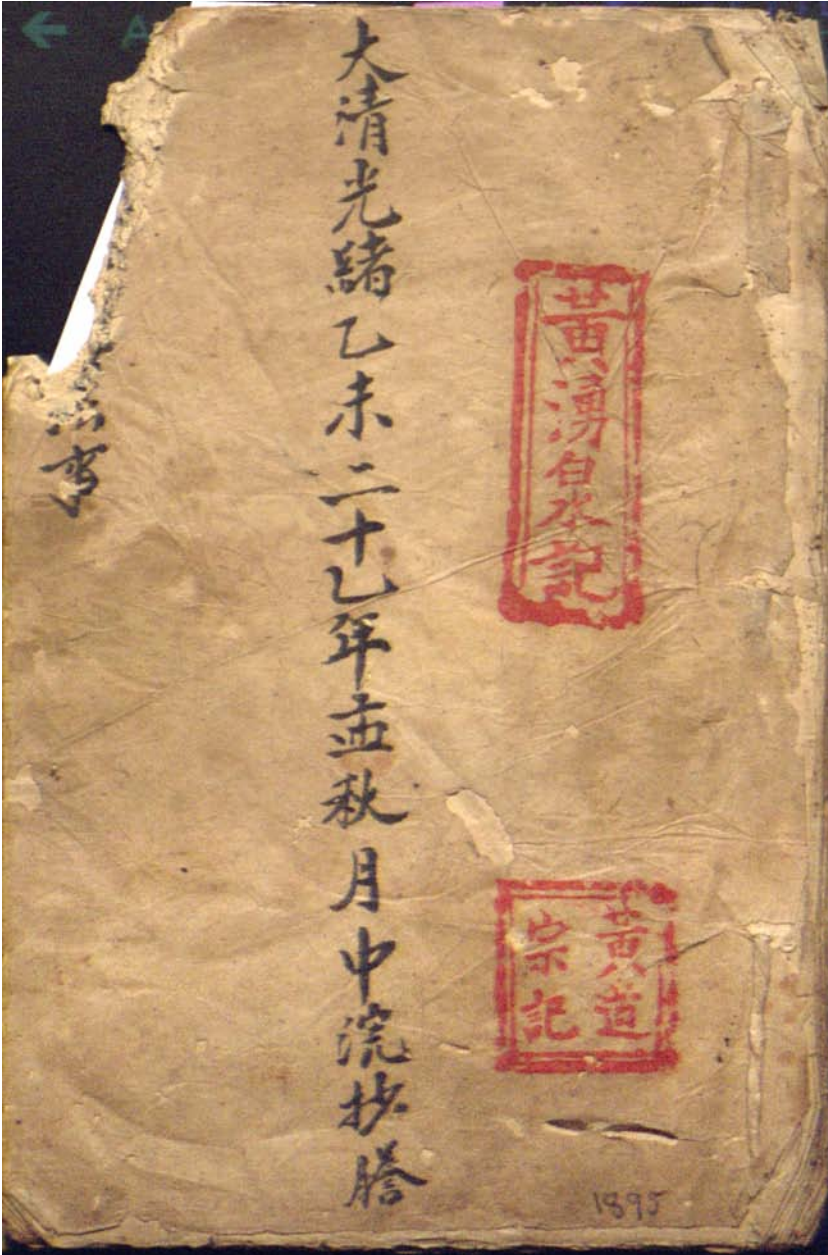 黃湧泉記
黃道
宗記
大清光緒乙未二十乙年孟秋月中浣抄謄
1895